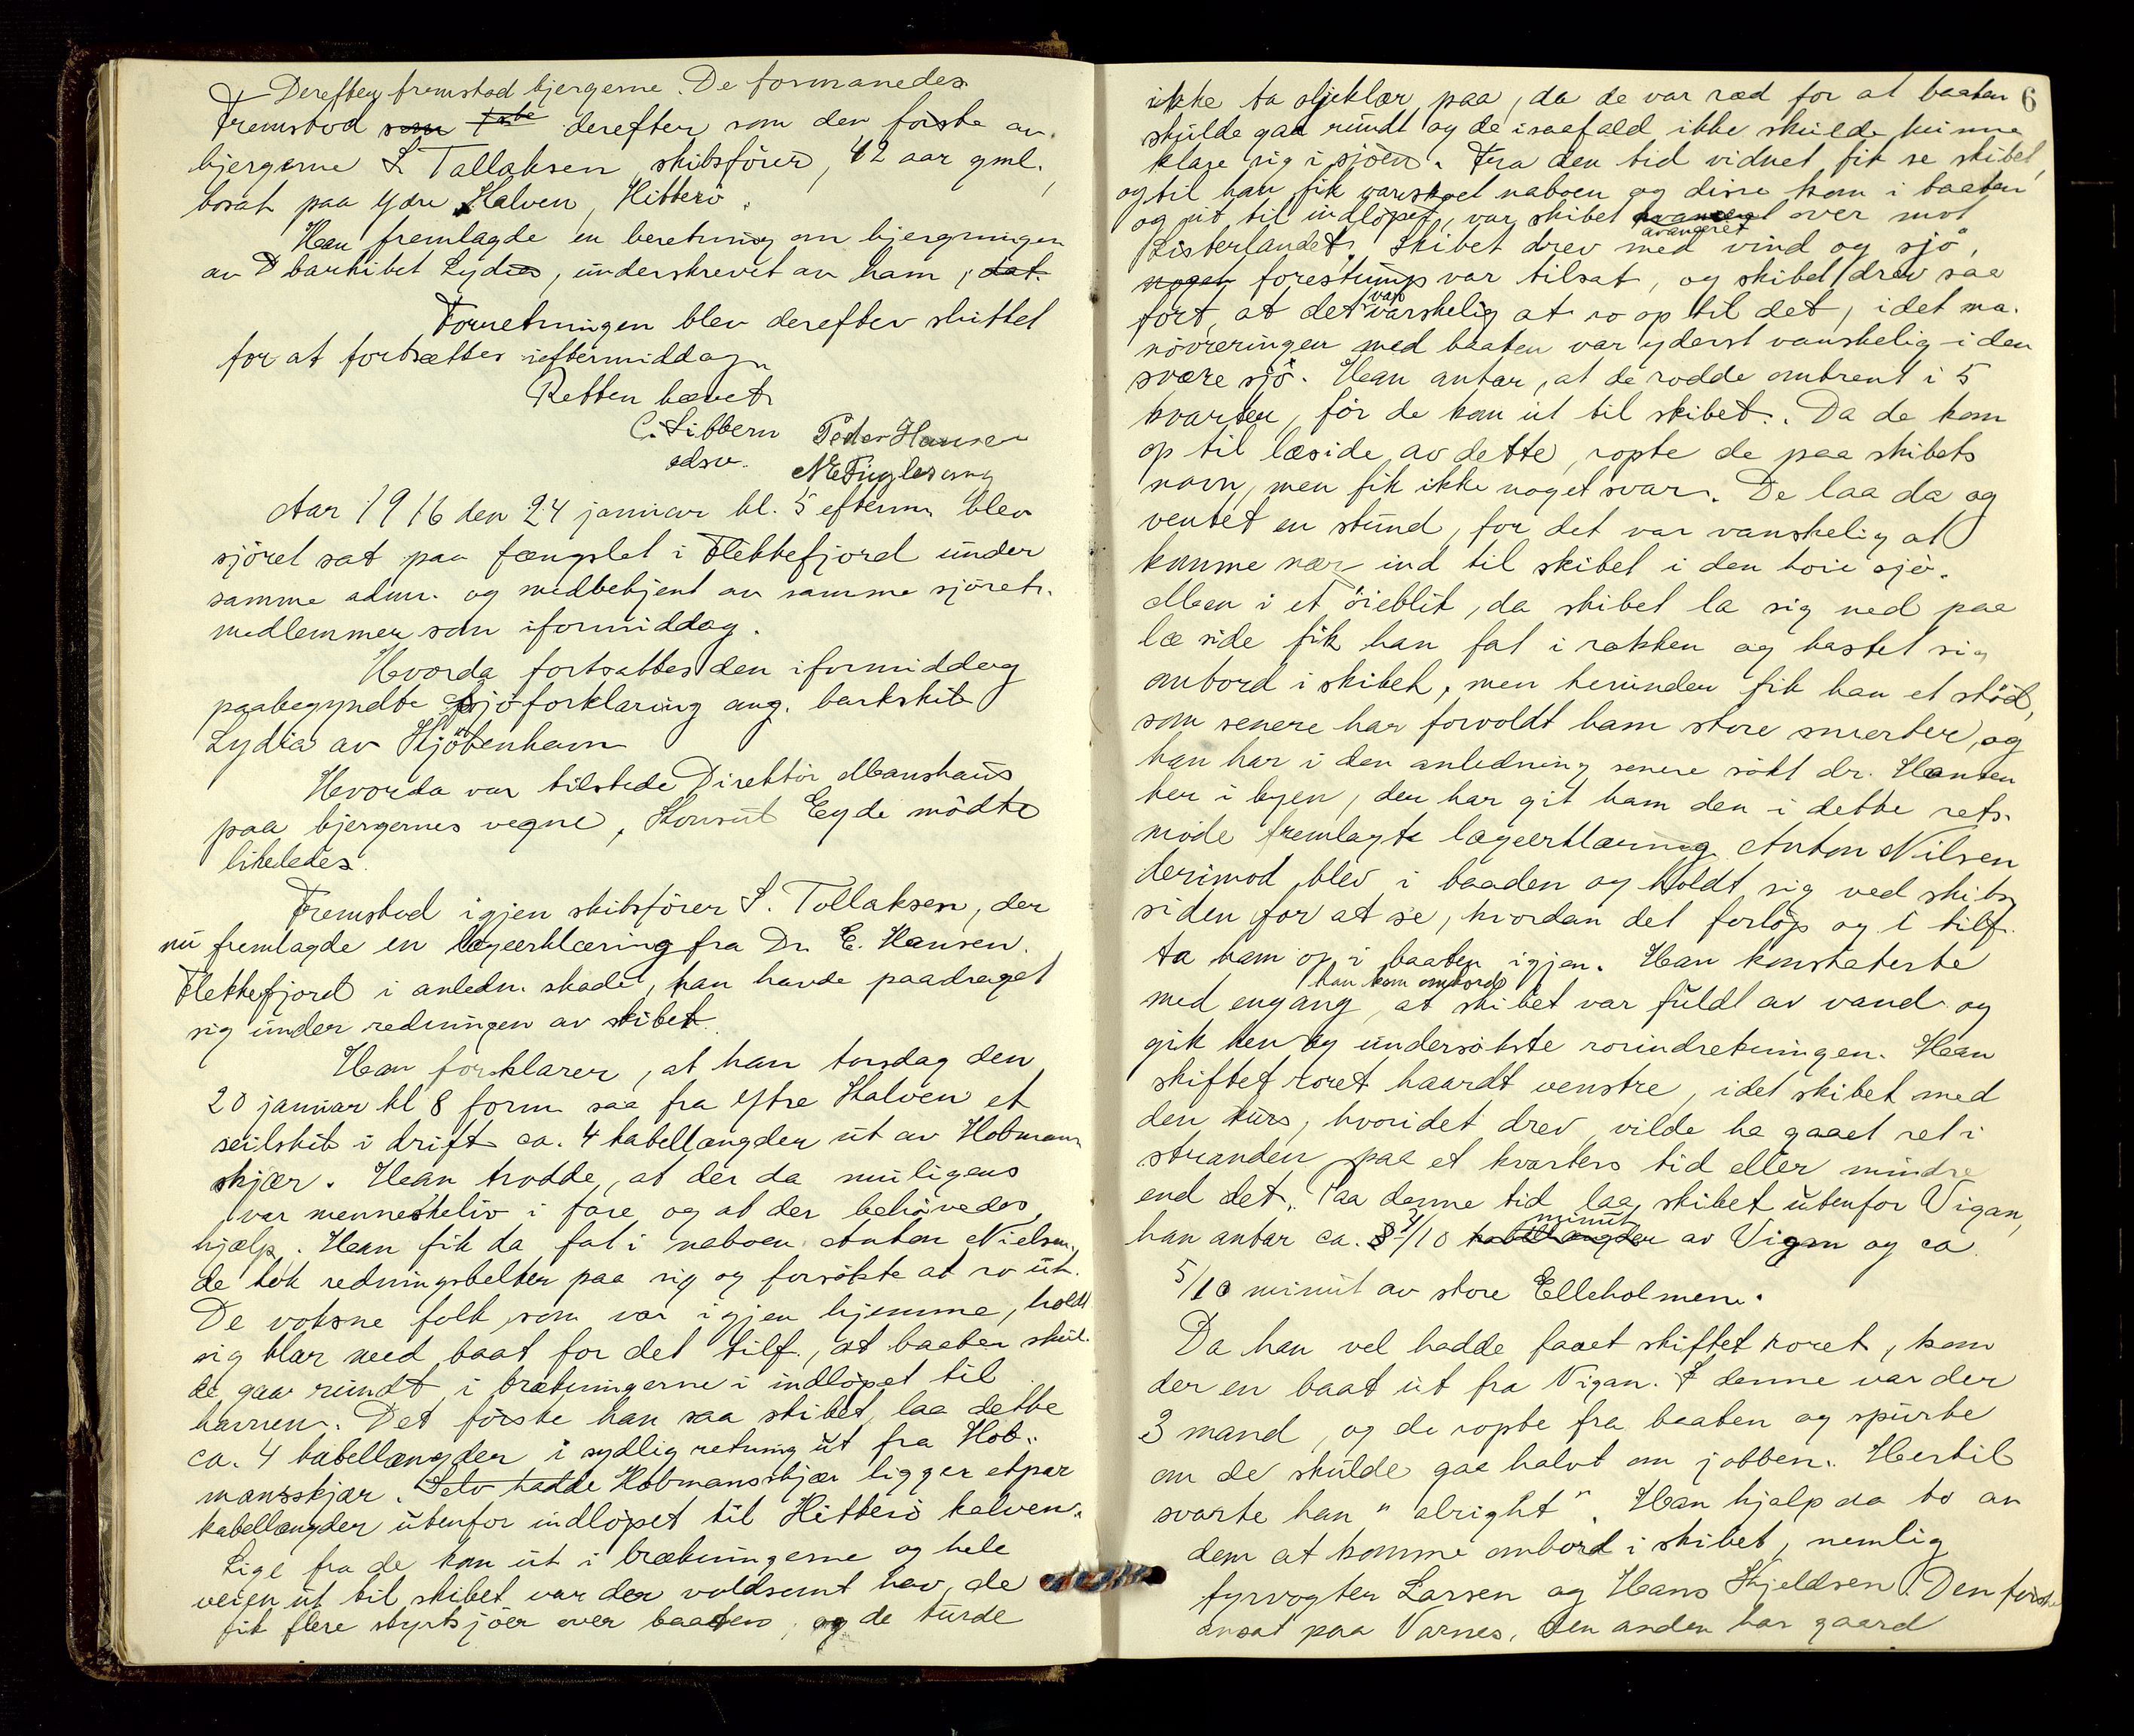 Derefter fremstod bjergerne. De formanedes
Fremstod som 1ste derefter som den förste av
bjergerne S Tallaksen, skibsförer, 42 aar gml.,
bosat paa Ydre Kalven, Hitterö.
Han fremlagde en beretning om bjergningen
av D barkskibet Lydia, underskrevet av ham, dat.
Forretningen blev derefter sluttet
for at fortsættes ieftermiddag.
Retten hævet
C. Sibbern Peder Hansen
adsv. N E Fuglesang
Aar 1916 den 24 januar kl. 5 efterm. blev
sjöret sat paa fængslet i Flekkefjord under
samme adm. og medbetjent av samme sjörets-
medlemmer som iformiddag.
Hvorda fortsattes den iformiddag
paabegyndte sjöforklaring ang. barkskib
Lydia av Kjöbenhavn
Hvorda var tilstede Direktör Manshaus
paa bjergernes vegne, Konsul Eyde mödte
likeledes.
Fremstod igjen skibsförer S. Tollaksen, der
nu fremlagde en lægeerklæring fra Dr. E. Hansen.
Flekkefjord i anledn. skade, han havde paadraget
sig under redningen av skibet.
Han forklarer, at han torsdag den
20 januar kl 8 form. saa fra Ytre Kalven et
seilskib i drift ca. 4 kabellængder ut av Hobmans
skjær. Han trodde, at der da muligens
var menneskeliv i fare og at der behövedes
hjælp. Han fik da fat i naboen Anton Nielsen,
de tok redningsbelter paa sig og forsökte at ro ut.
De voksne folk, som var igjen hjemme, holdt
sig klar med baat for det tilf., at baaten skul-
de gaa rundt i brækningerne i indlöpet til
havnen. Det förste han saa skibet, laa dette
ca. 4 kabellængder i sydlig retning ut fra Hob-
mansskjær. Selv hadde Hobmansskjær ligger etpar
kabellængder utenfor indlöpet til Hitterö kalven.
Lige fra de kom ut i brækningerne og hele
veien ut til skibet var der voldsomt hav, de
fik flere styrtsjöer over baaten, og de turde
6
ikke ta oljeklær paa, da de var ræd for at baaten
skulde gaa rundt og de isaafald ikke skulde kunne
klare sig i sjöen. Fra den tid vidnet fik se skibet,
og til han fik varskoet naboen og disse kom i baaten
og ut til indlöpet, var skibet avancert over mot
avanceret
Listerlandet. Skibet drev med vind og sjö,
noget forestump var tilsat, og skibet drev saa
var
fort, at det vanskelig at ro op til det, idet ma-
növreringen med baaten var yderst vanskelig i den
svære sjö. Han antar, at de rodde omtrent i 5
kvarter, för de kom ut til skibet. Da de kom
op til læside av dette, ropte de paa skibets
navn, men fik ikke noget svar. De laa da og
ventet en stund, for det var vanskelig at
komme nær ind til skibet i den höie sjö.
Men i et öieblik, da skibet la sig ned paa
læ side fik han fat i røkken og kastet sig
ombord i skibet, men herunder fik han et stöd,
som senere har forvoldt ham store smerter, og
han har i den anledning senere sökt dr. Hansen
her i byen, der har git ham den i dette rets-
möde fremlagte lægeerklæring. Anton Nilsen
derimod blev i baaden og holdt sig ved skibs-
siden for at se, hvordan det forlöp og i tilf.
ta ham op i baaten igjen. Han konstaterte
han kom ombord
med engang, at skibet var fuldt av vand og
gik hen og undersökte rorindretningen. Han
skiftet roret haardt venstre, idet skibet med
den kurs, hvori det drev, vilde ha gaaet ret i
stranden paa et kvarters tid eller mindre
end det. Paa denne tid laa skibet utenfor Vigan,
minut
han antar ca. 4/10 kabellængder av Vigan og ca.
5/10 minut av store Elleholmen.
Da han vel hadde faaet skiftet roret, kom
der en baat ut fra Vigan. I denne var der
3 mand, og de ropte fra baaten og spurte
om de skulde gaa halvt om jobben. Hertil
svarte han "alright". Han hjalp da to av
dem at komme ombord i skibet, nemlig
fyrvogter Larsen og Hans Kjeldsen. Den förste
ansat paa Varnes, den anden har gaard